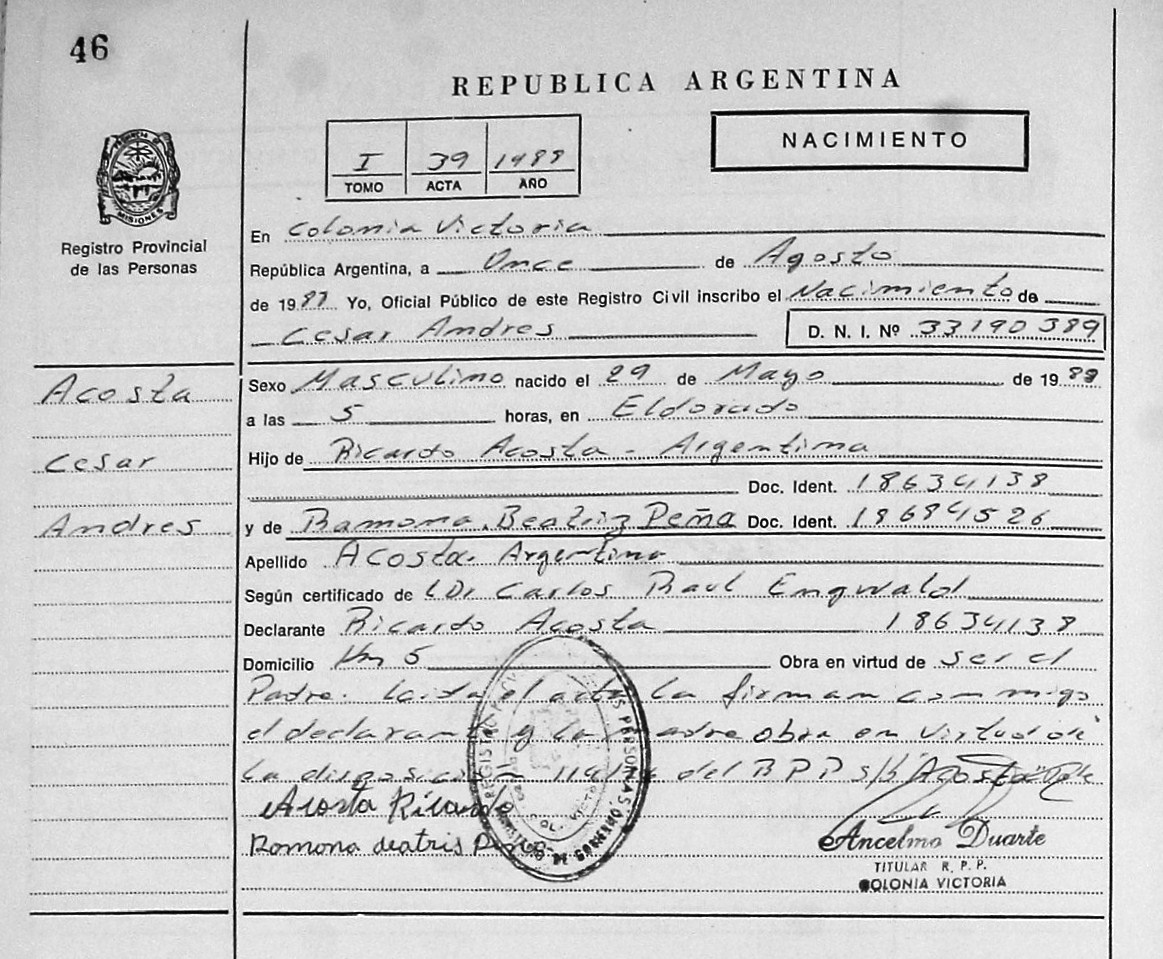 46
REPUBLICA ARGENTINA
I 39 1988
TOMO ACTA AÑO
NACIMIENTO
PROVINCIA DE MISIONES
Registro Provincial
de las Personas
En Colonia Victoria
República Argentina, a Once de Agosto
de 1988 Yo, Oficial Público de este Registro Civil inscribo el Nacimiento de
Cesar Andres D. N. I. Nº 33190389
Acosta
Cesar
Andres
Sexo Masculino nacido el 29 de Mayo de 1988
a las 5 horas, en Eldorado
Hijo de Ricardo Acosta - Argentina
Doc. Ident. 18634138
y de Ramona Beatriz Peña Doc. Ident. 18684526
Apellido Acosta. Argentina
Según certificado de Dr Carlos Raul Engwald
Declarante Ricardo Acosta 18634138
Domicilio Km 5 Obra en virtud de ser el
Padre. Leida el acta la firman conmigo
el declarante y la madre obra en virtud de
la disposición del R P P s/b Acosta
Acosta Ricardo
Romona deatris
Ancelmo Duarte
TITULAR R. P. P.
COLONIA VICTORIA